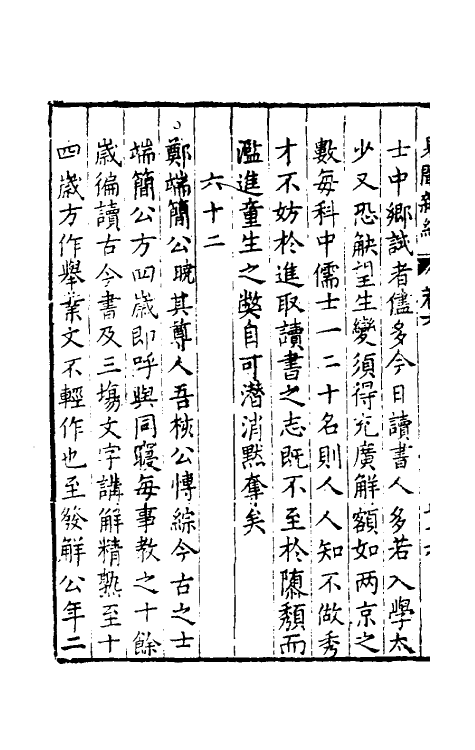 見聞雜紀 卷六
士中鄉試者儘多今日讀書人多若入學太
少又恐觖望生變須得充廣解額如两京之
數每科中儒士一二十名則人人知不做秀
才不妨於進取讀書之志既不至於隳頽而
濫進童生之弊自可潜消默奪矣
六十二
鄭端簡公曉其尊人吾核公愽綜今古之士
端簡公方四歲即呼與同寢每事教之十餘
歲徧讀古今書及三塲文字講解精熟至十
四歲方作舉業文不輕作也至發解公年二